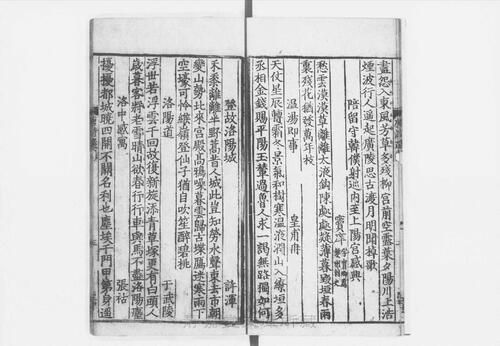 盡怨入東風芳草多殘柳宮前空露葉夕陽川上浩
煙波行人遥起廣陵思古渡月明聞棹歌
陪留守韓僕射巡内至上陽宮感興
竇庠
愁雲漠漠草離離太液鈎陳處處疑薄暮毀垣春雨
裏殘花猶發萬年枝
温湯即事 皇甫冉
天仗星辰轉霜冬景氣和樹寒温液潤山入繚垣多
丞相金錢賜平陽玉輦過魯人求一謁無路獨如何
登故洛陽城 許渾
禾黍離離半野蒿昔人城此豈知勞水聲東去市朝
變山勢北來宮殿高鴉噪暮雲歸古堞鴈迷寒雨下
空壕可怜緱嶺登仙子猶自吹笙醉碧桃
洛陽道 于武陵
浮世若浮雲千回故復新旋添青草塚更有白頭人
歲暮客將老雪晴山欲春行行車與馬不盡洛陽塵
洛中感寓 張祜
擾擾都城曉四開不關名利也塵埃千門甲第身遥